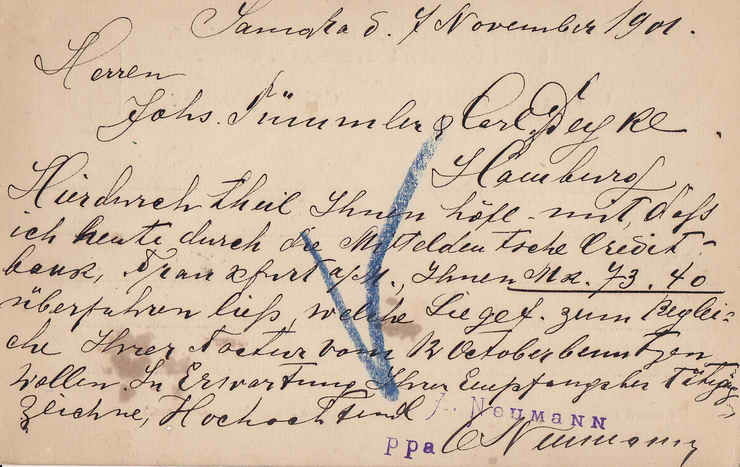 d. 7 November 1901.
Herren
Johs. Tümmler & Carl Deyke
Hamburg
Hierdurch theil Ihnen höfl. mit, daſs
ich heute durch die Mitteldeutsche Credit-
bank, Frankfurt a/M., Ihnen Mk. 73.40
überfahren ließ, welche Sie gef. zum Beglei-
che Ihrer Factur vom 12 October benutzen
wollen. In Erwartung Ihrer Empfangsbestätigg
zeichne, Hochachtend
Neumann
ppa C Neumann